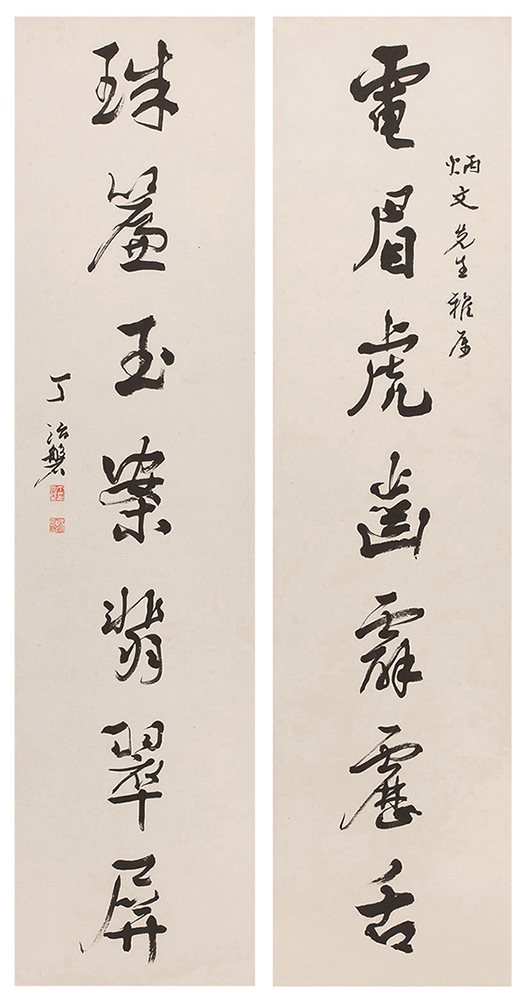 炳文先生雅屬
電眉虎齒霹靂舌
珠簾玉案翡翠屏
丁治磐